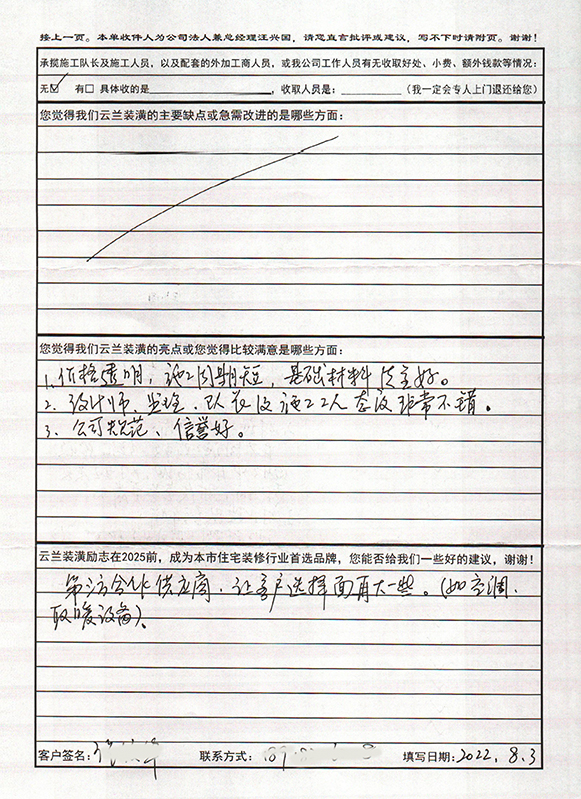 接上一页。本单收件人为公司法人兼总经理汪兴国，请您直言批评或建议，写不下时请附页。谢谢！
承揽施工队长及施工人员，以及配套的外加工商人员，或我公司工作人员有无收取好处、小费、额外钱款等情况：
无☑ 有□ 具体收的是________，收取人员是：________（我一定会专人上门退还给您）
您觉得我们云兰装潢的主要缺点或急需改进的是哪些方面：
您觉得我们云兰装潢的亮点或您觉得比较满意是哪些方面：
1. 价格透明，施工周期短，基础材料质量好。
2. 设计师、监理、队长及施工工人态度非常不错。
3、公司规范、信誉好。
云兰装潢励志在2025前，成为本市住宅装修行业首选品牌，您能否给我们一些好的建议，谢谢！
第三方合作供应商，让客户选择面再大一些。(如空调、
取暖设备)。
客户签名： 联系方式： 填写日期：2022.8.3